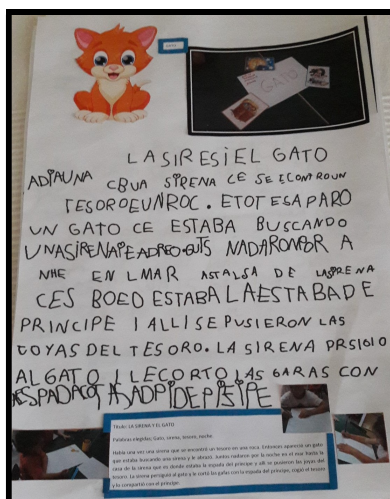 GATO
LA SIRESIEL GATO
ADIAUNA CBUA SIRENA CE SE ECONTROUN
TESOROEUNROC. ETOTESAPARO
UN GATO CE ESTABA BUSCANDO
UNASIRENA NADARONPOR A
NHE EN LMAR ASTALSA DE LASRENA
CES BOED ESTABALAESTABADE
PRINCIPE I ALLISEPUSIERON LAS
COYAS DEL TESORO. LA SIRENA PRSIGIO
AL GATO I LECORTO LAS GARAS CON
Título: LA SIRENA Y EL GATO
Palabras elegidas: Gato, sirena, tesoro, noche
Había una vez una sirena que se encontró un tesoro en una roca. Entonces apareció un gato
que estaba buscando una sirena y le abrazó. Juntos nadaron por la noche en el mar hasta la
casa de la sirena que es donde estaba la espada del príncipe y allí se pusieron las joyas del
tesoro. La sirena persiguió al gato y le cortó las garras con la espada del príncipe, cogió el tesoro
y lo compartió con el príncipe.